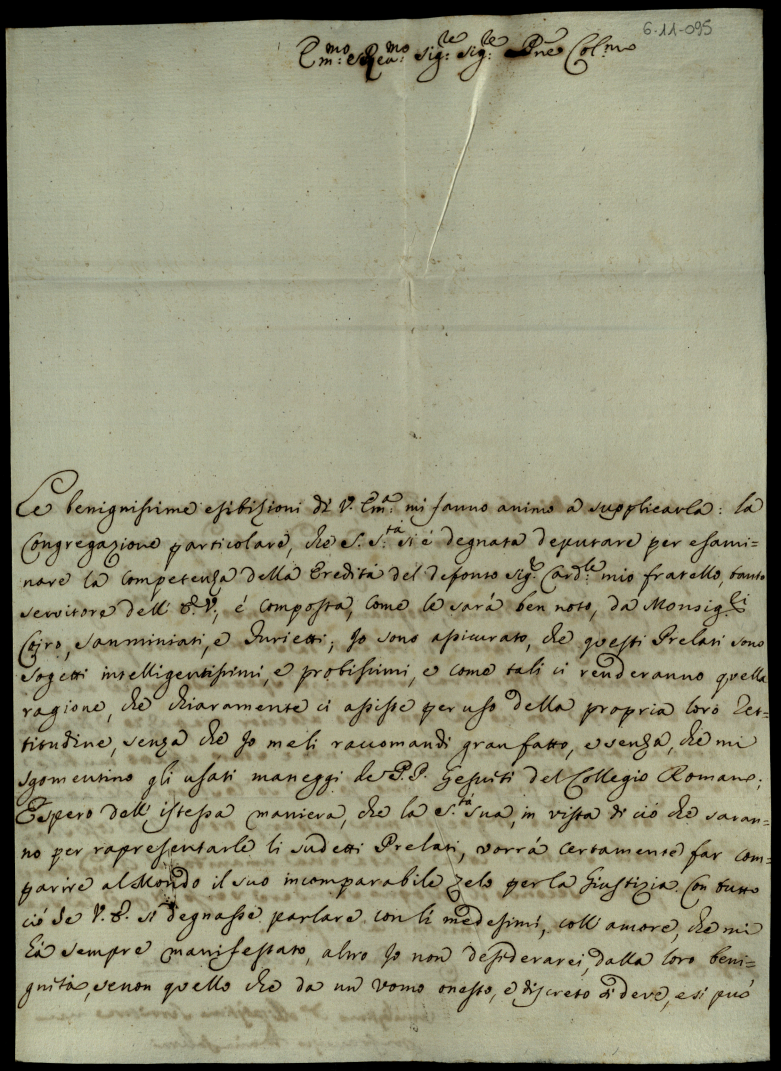 6-11-095
Em:mo e Rev:mo Sig:re Sig:re Pne Col:mo
Le benignissime esibizioni di V. Em:a mi fanno animo a supplicarla: la
Congregazione particolare, che S. S:tá si é degnata deputare per esami-
nare la Competenza della Eredità del defonto Sig:r Card:le mio fratello, tanto
servitore dell' E.V, é composta, come le sará ben noto, da Monsig:ri
Sanminiati, e Furietti; Io sono assicurato, che questi Prelati sono
sogetti intelligentissimi, e probissimi, e come tali ci renderanno quella
ragione, che chiaramente ci assiste per uso della propria loro Ret-
titudine, senza che Io me li raccomandi gran fatto, e senza, che mi
sgomentino gli usati maneggi de P.P. Gesuiti del Collegio Romano;
E spero dell' istessa maniera, che la S:tá Sua, in vista di ció che saran-
no per rapresentarle li sudetti Prelati, vorrá certamente far com-
parire al Mondo il suo incomparabile Zelo per la Giustizia. Con tutto
ció se V.E. si degnasse parlare con li medesimi, coll' amore, che mi
há sempre manifestato, altro Io non desiderarei, dalla loro beni-
gnitá, senon quello che da un' uomo onesto, e discreto si deve, e si puó